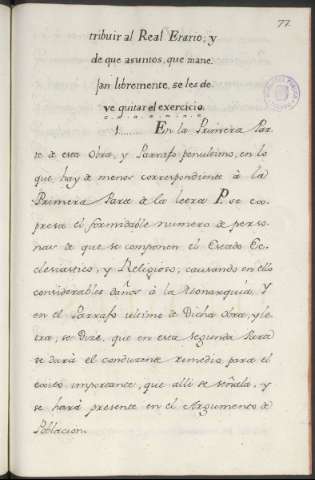 77
tribuir al Real Erario, y
de que asuntos, que mane
jan libremente, se les de
ve quitar el exercicio.
1....... En la Primera Par
te de esta Obra, y Parrafo penultimo, en lo
que hay de menos correspondiente à la
Primera Parte de la letra P se ex
presa el formidable numero de perso
nas de que se componen el Estado Ec
clesiastico, y Religioso, causando en ello
considerables daños à la Monarquia. Y
en el Parrafo ultimo de Dicha Obra, y le
tra, se Dixe, que en esta Segunda Parte
se daria el conducente remedio para el
exceso importante, que alli se señala, y
se hará presente en el Argumento de
Poblacion.